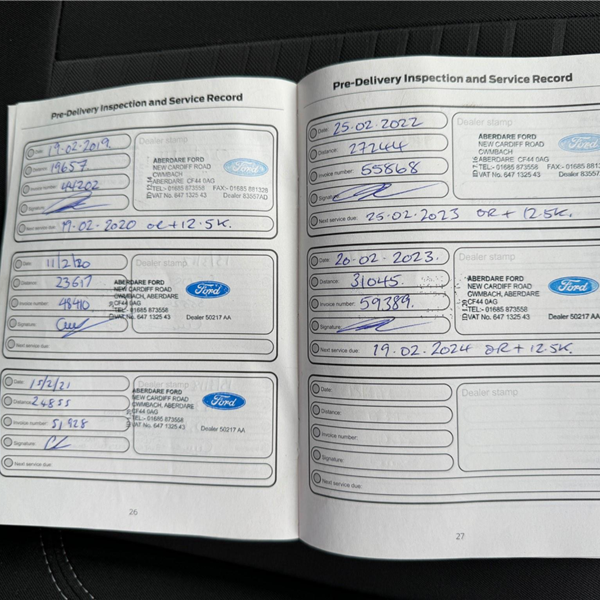 Pre-Delivery Inspection and Service Record
Date: 19-02-2019
Distance: 19657
Invoice number: 44202
Signature:
Next service due: 19-02-2020 OR + 12.5K.
Dealer stamp
ABERDARE FORD
NEW CARDIFF ROAD
CWMBACH
ABERDARE CF44 0AG
TEL:- 01685 873558 FAX:- 01685 881328
VAT No. 647 1325 43 Dealer 83557AD
Ford
Date: 11/2/20
Distance: 23617
Invoice number: 48410
Signature:
Next service due:
Dealer stamp
ABERDARE FORD
NEW CARDIFF ROAD
CWMBACH, ABERDARE
CF44 0AG
TEL:- 01685 873558
VAT No. 647 1325 43 Dealer 50217 AA
Ford
Date: 15/2/21
Distance: 24855
Invoice number: 51928
Signature:
Next service due:
ABERDARE FORD
NEW CARDIFF ROAD
CWMBACH, ABERDARE
CF44 0AG
TEL:- 01685 873558
VAT No. 647 1325 43 Dealer 50217 AA
Ford
26
Pre-Delivery Inspection and Service Record
Date: 25-02-2022
Distance: 27244
Invoice number: 55868
Signature:
Next service due: 25-02-2023 OR + 12.5K.
Dealer stamp
ABERDARE FORD
NEW CARDIFF ROAD
CWMBACH
ABERDARE CF44 0AG
TEL:- 01685 873558 FAX:- 01685 881
VAT No. 647 1325 43 Dealer 83557
Ford
Date: 20-02-2023.
Distance: 31045.
Invoice number: 59389.
Signature:
Next service due: 19.02.2024 OR + 12.5K.
Dealer stamp
ABERDARE FORD
NEW CARDIFF ROAD
CWMBACH, ABERDARE
CF44 0AG
TEL:- 01685 873558
VAT No. 647 1325 43 Dealer 50217 AA
Ford
Date:
Distance:
Invoice number:
Signature:
Next service due:
Dealer stamp
27